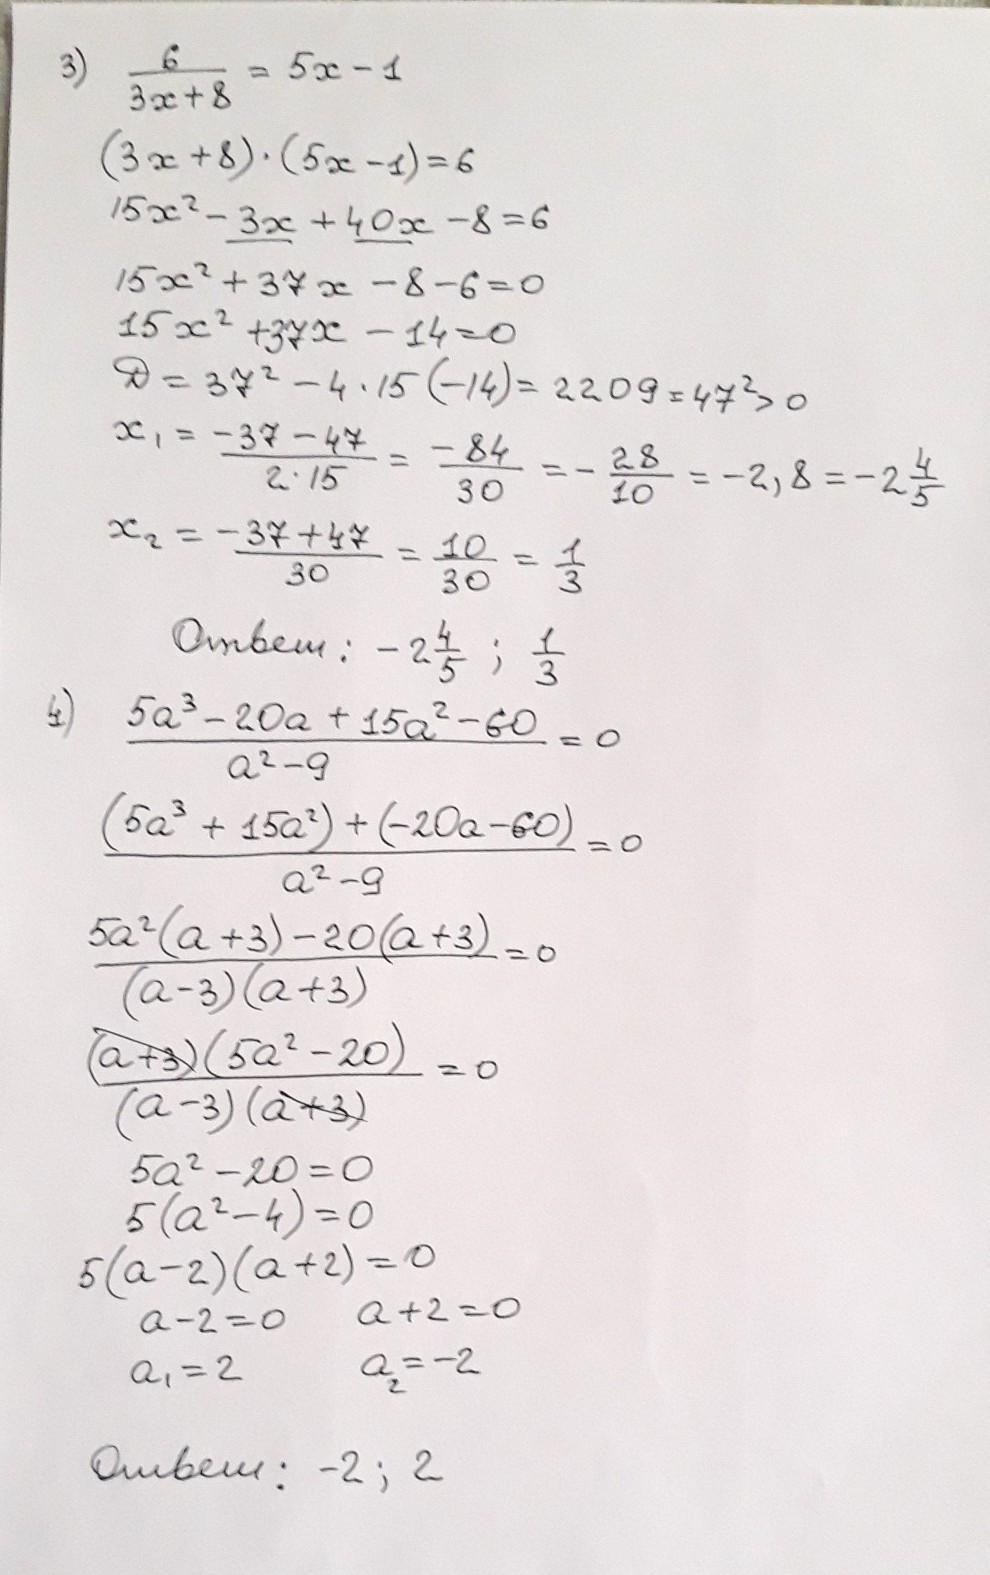 3) 6/(3x+8) = 5x-1
(3x+8)·(5x-1)=6
15x²-3x+40x-8=6
15x²+37x-8-6=0
15x²+37x-14=0
D=37²-4·15(-14)=2209=47²>0
x₁ = (-37-47)/(2·15) = -84/30 = -28/10 = -2,8 = -2 4/5
x₂ = (-37+47)/30 = 10/30 = 1/3
Ответ: -2 4/5 ; 1/3
4) (5a³-20a+15a²-60)/(a²-9) = 0
((5a³+15a²)+(-20a-60))/(a²-9) = 0
(5a²(a+3)-20(a+3))/((a-3)(a+3)) = 0
((a+3)(5a²-20))/((a-3)(a+3)) = 0
5a²-20=0
5(a²-4)=0
5(a-2)(a+2)=0
a-2=0 a+2=0
a₁=2 a₂=-2
Ответ: -2; 2